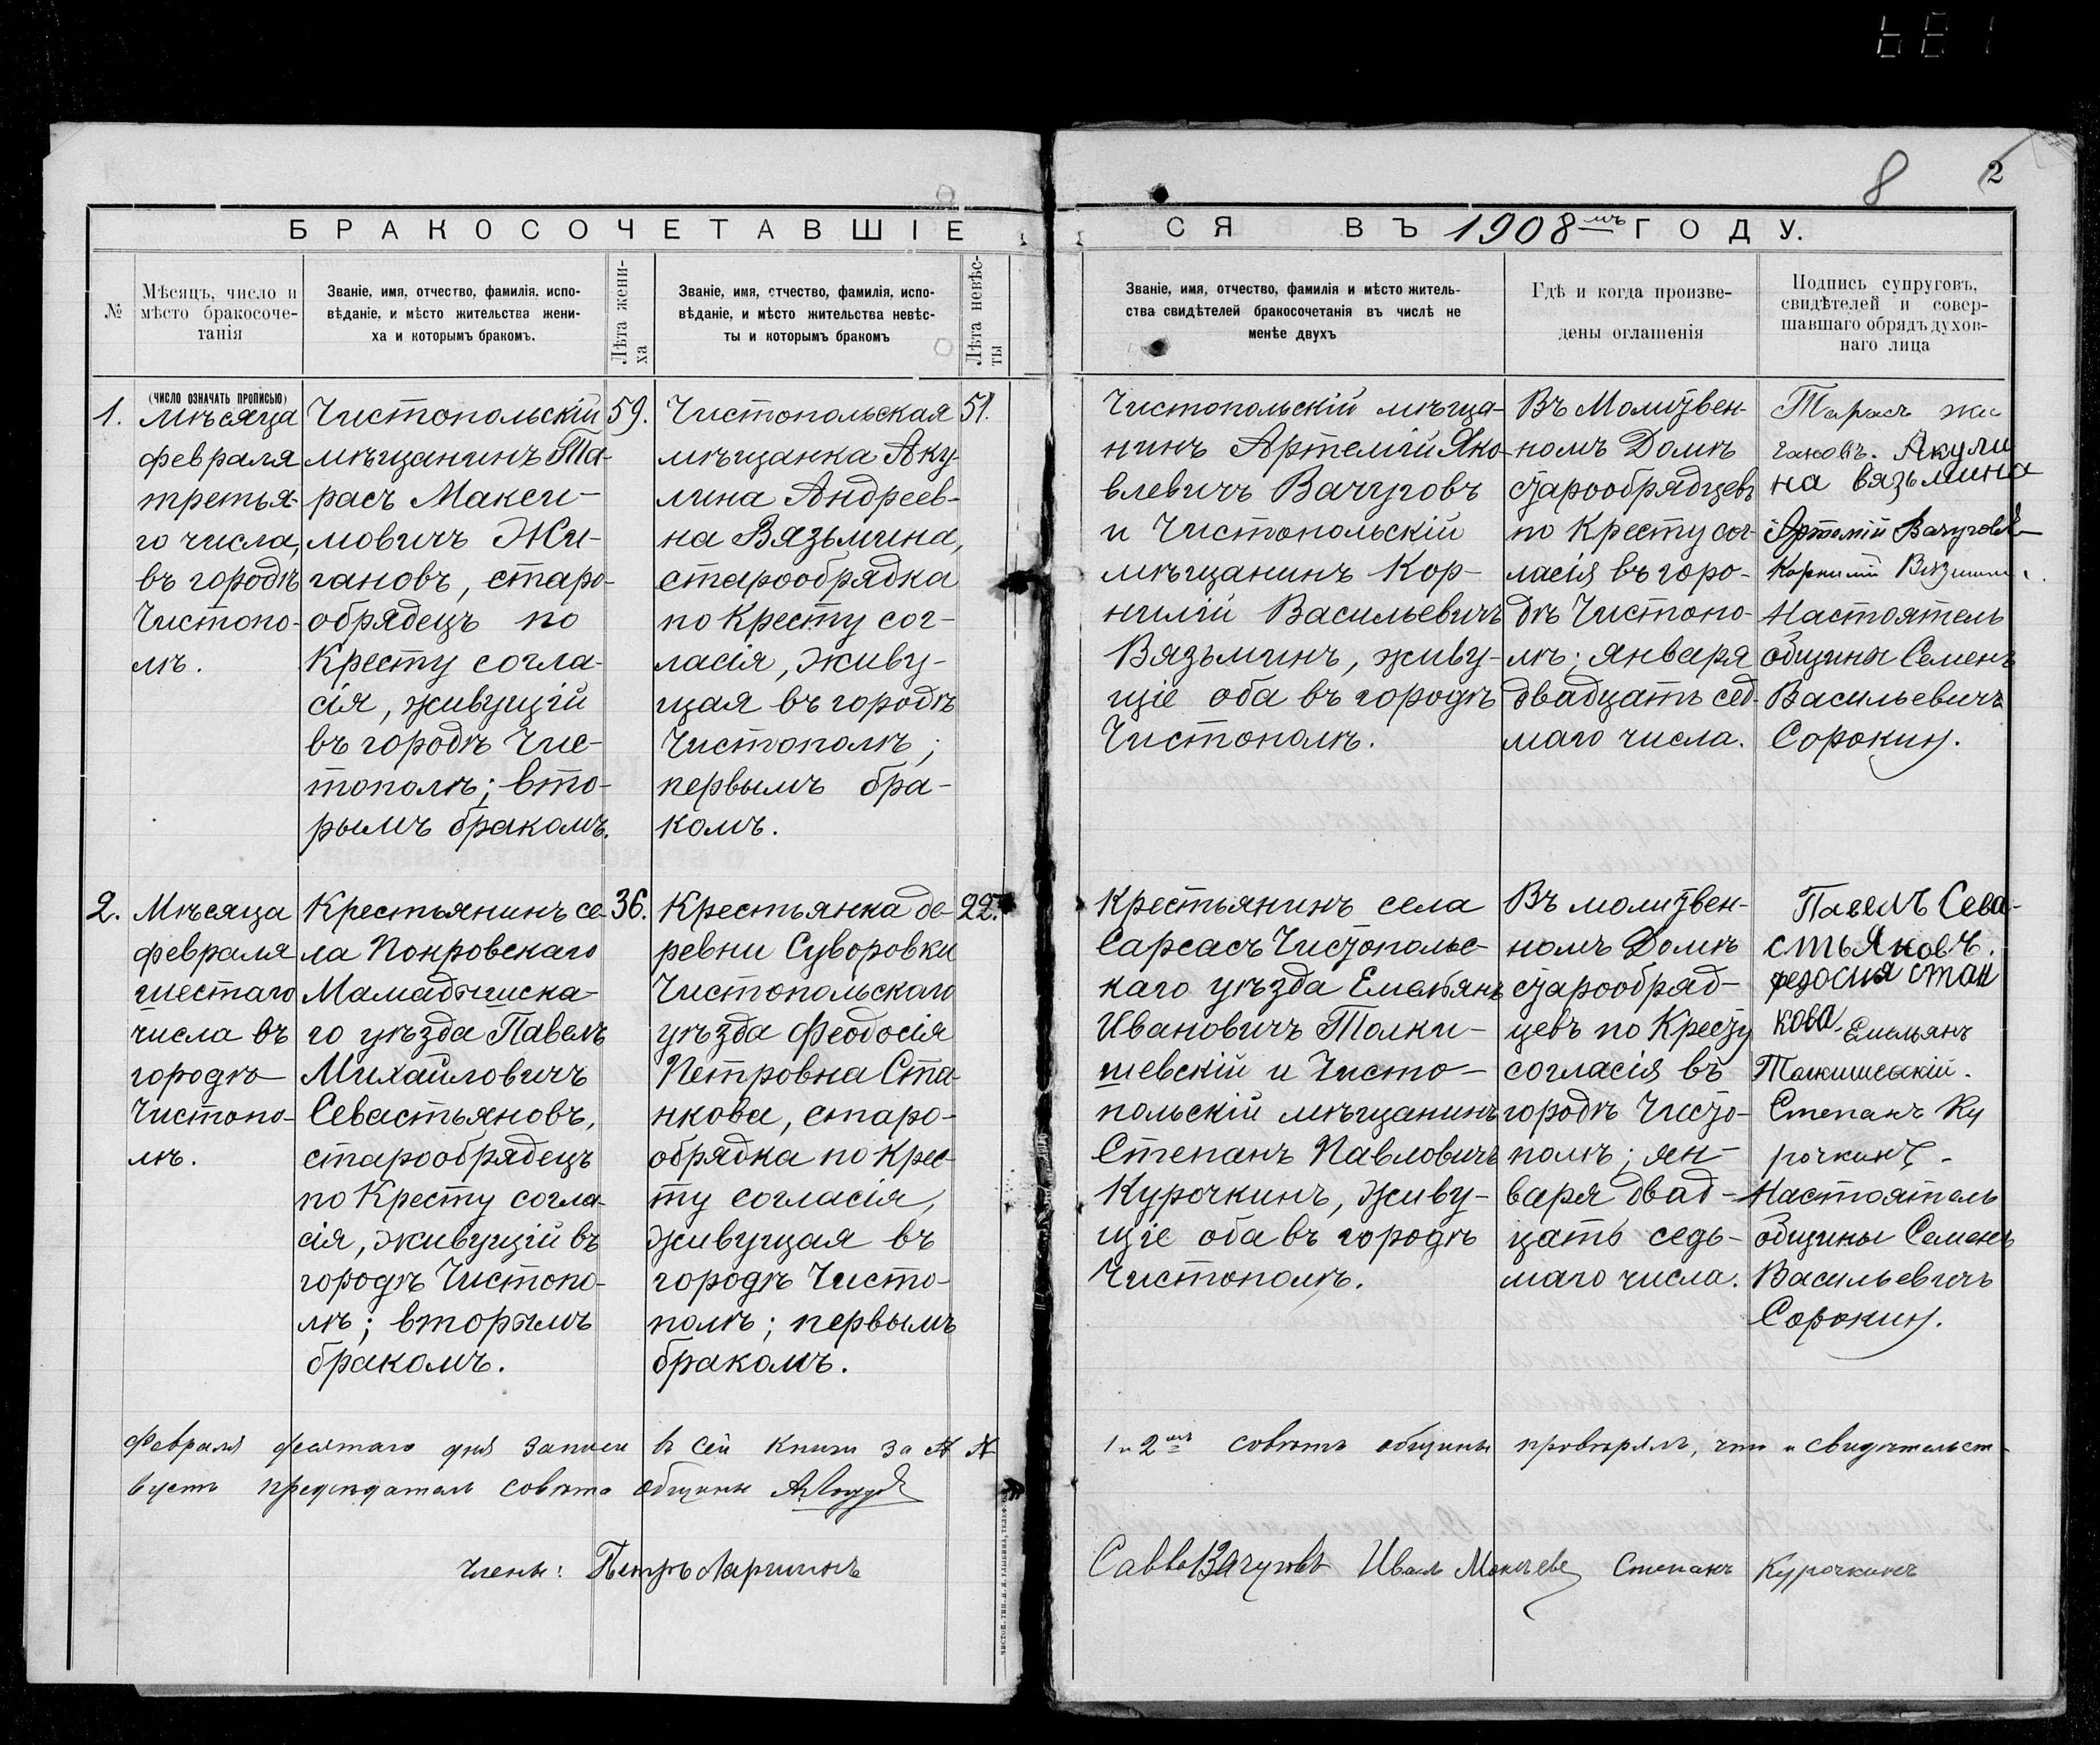 8 2
БРАКОСОЧЕТАВШІЕ
№
Мѣсяцъ, число и
мѣсто бракосоче-
танія
Званіе, имя, отчество, фамилія, испо-
вѣданіе, и мѣсто жительства жени-
ха и которымъ бракомъ.
Лѣта жени-
ха
Званіе, имя, отчество, фамилія, испо-
вѣданіе, и мѣсто жительства невѣс-
ты и которымъ бракомъ
Лѣта невѣс-
ты
СЯ ВЪ 1908мъ ГОДУ.
Званіе, имя, отчество, фамилія и мѣсто житель-
ства свидѣтелей бракосочетанія въ числѣ не
менѣе двухъ
Гдѣ и когда произве-
дены оглашенія
Подпись супруговъ,
свидѣтелей и совер-
шавшаго обрядъ духов-
наго лица
(число означать прописью)
1.
Мѣсяца
февраля
третья-
го числа,
въ городѣ
Чистопо-
лѣ.
Чистопольскій
мѣщанинъ Та-
расъ Макси-
мовичъ Жи-
гановъ, старо-
обрядецъ по
Кресту согла-
сія, живущій
въ городѣ Чис-
тополѣ; вто-
рымъ бракомъ.
59.
Чистопольская
мѣщанка Аку-
лина Андреев-
на Вязьмина,
старообрядка
по Кресту сог-
ласія, живу-
щая въ городѣ
Чистополѣ;
первымъ бра-
комъ.
51.
Чистопольскій мѣща-
нинъ Артемій Яко-
влевичъ Вачуговъ
и Чистопольскій
мѣщанинъ Кор-
нилій Васильевичъ
Вязьминъ, живу-
щіе оба въ городѣ
Чистополѣ.
Въ Молитвен-
номъ Домѣ
старообрядцевъ
по Кресту сог-
ласія въ горо-
дѣ Чистопо-
лѣ; января
двадцать сед-
маго числа.
Тарасъ Жи
гановъ. Акули
на вязьмина
Артемій Вачуговъ
Корнилій
Настоятель
общины Семенъ
Васильевичъ
Сорокинъ.
2.
Мѣсяца
февраля
шестаго
числа въ
городѣ
Чистопо-
лѣ.
Крестьянинъ се-
ла Покровскаго
Мамадышска-
го уѣзда Павелъ
Михайловичъ
Севастьяновъ,
старообрядецъ
по Кресту согла-
сія, живущій въ
городѣ Чистопо-
лѣ; вторымъ
бракомъ.
36.
Крестьянка де-
ревни Суворовки
Чистопольскаго
уѣзда Феодосія
Петровна Ста-
нкова, старо-
обрядка по Крес-
ту согласія,
живущая въ
городѣ Чисто-
полѣ; первымъ
бракомъ.
22.
Крестьянинъ села
Сарсасъ Чистопольс-
каго уѣзда Емельянъ
Ивановичъ Толки-
шевскій и Чисто-
польскій мѣщанинъ
Степанъ Павловичъ
Курочкинъ, живу-
щіе оба въ городѣ
Чистополѣ.
Въ молитвен-
номъ Домѣ
старообряд-
цевъ по Кресту
согласія въ
городѣ Чисто-
полѣ; ян-
варя двад-
цать седь-
маго числа.
Павелъ Сева-
стьЯновъ.
федосия стан
кова. Емельянъ
Толкишевскій.
Степанъ Ку
рочкинъ
Настоятель
общины Семенъ
Васильевичъ
Сорокинъ.
Февраля девятаго дня записи в сей книги за № № 1 и 2мъ совѣтъ общины провѣрялъ, что и свидѣтельст-
вуетъ предсѣдатель совѣта общины
Члены: Петръ Ларишинъ Савва Вачуговъ Иванъ Степанъ Курочкинъ